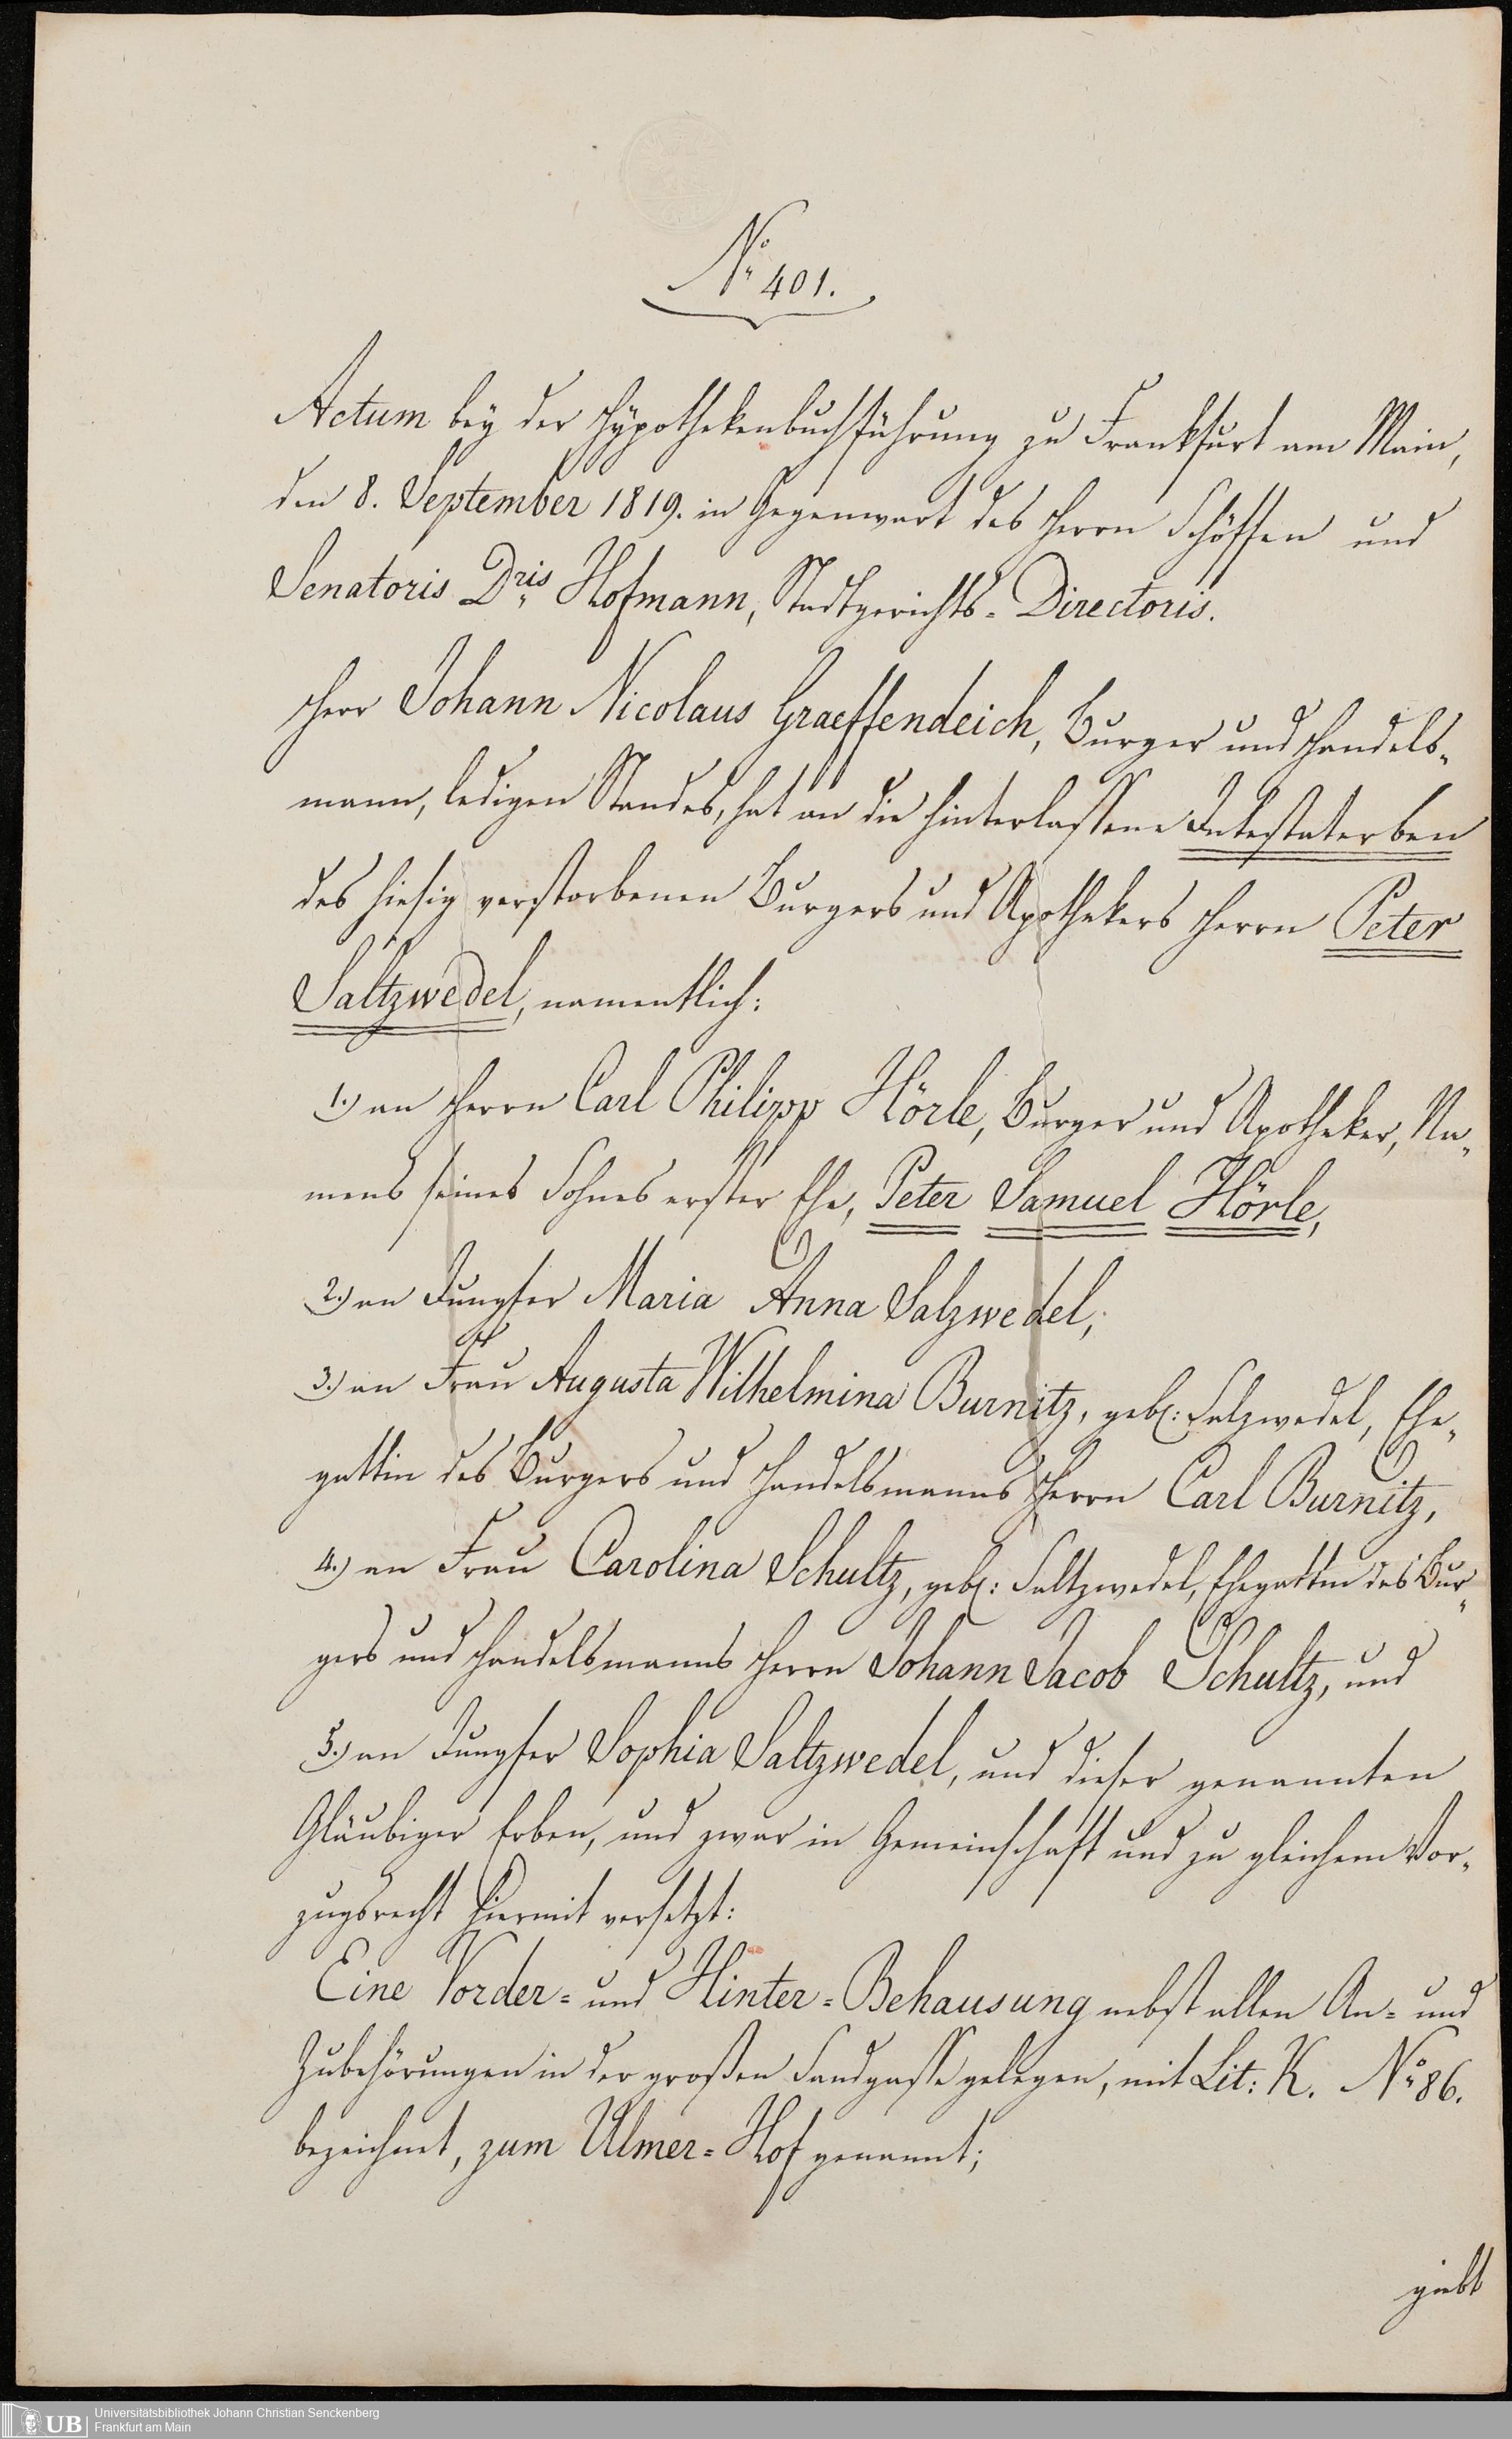 No. 401.
Actum bey der Hÿpothekenbuchführung zu Frankfurt am Main,
den 8. September 1819. in Gegenwart des Herrn Schöffen und
Senatoris Dris Hofmann, Stadtgerichts-Directoris.
Herr Johann Nicolaus Graeffendeich, Burger und Handels-
mann, ledigen Standes, hat an die hinterlassene Intestaterben
des hiesig verstorbenen Burgers und Apothekers Herrn Peter
Saltzwedel, namentlich:
1.) an Herrn Carl Philipp Hörle, Burger und Apotheker, Na-
mens seines Sohnes erster Ehe, Peter Samuel Hörle,
2.) an Jungfer Maria Anna Salzwedel,
3.) an Frau Augusta Wilhelmina Burnitz, geb: Salzwedel, Ehe-
gattin des Burgers und Handelsmanns Herrn Carl Burnitz,
4.) an Frau Carolina Schultz, geb: Saltzwedel, Ehegattin des Bur-
gers und Handelsmanns Herrn Johann Jacob Schultz, und
5.) an Jungfer Sophia Saltzwedel, und dieser genannten
Gläubiger Erben, und zwar in Gemeinschaft und zu gleichem Vor-
zugsrecht hiermit versetzt:
Eine Vorder- und Hinter-Behausung nebst allen An- und
Zubehörungen in der großen Sandgasse gelegen, mit Lit: K. No. 86.
bezeichnet, zum Ulmer-Hof genannt;
giebt
UB
Universitätsbibliothek Johann Christian Senckenberg
Frankfurt am Main